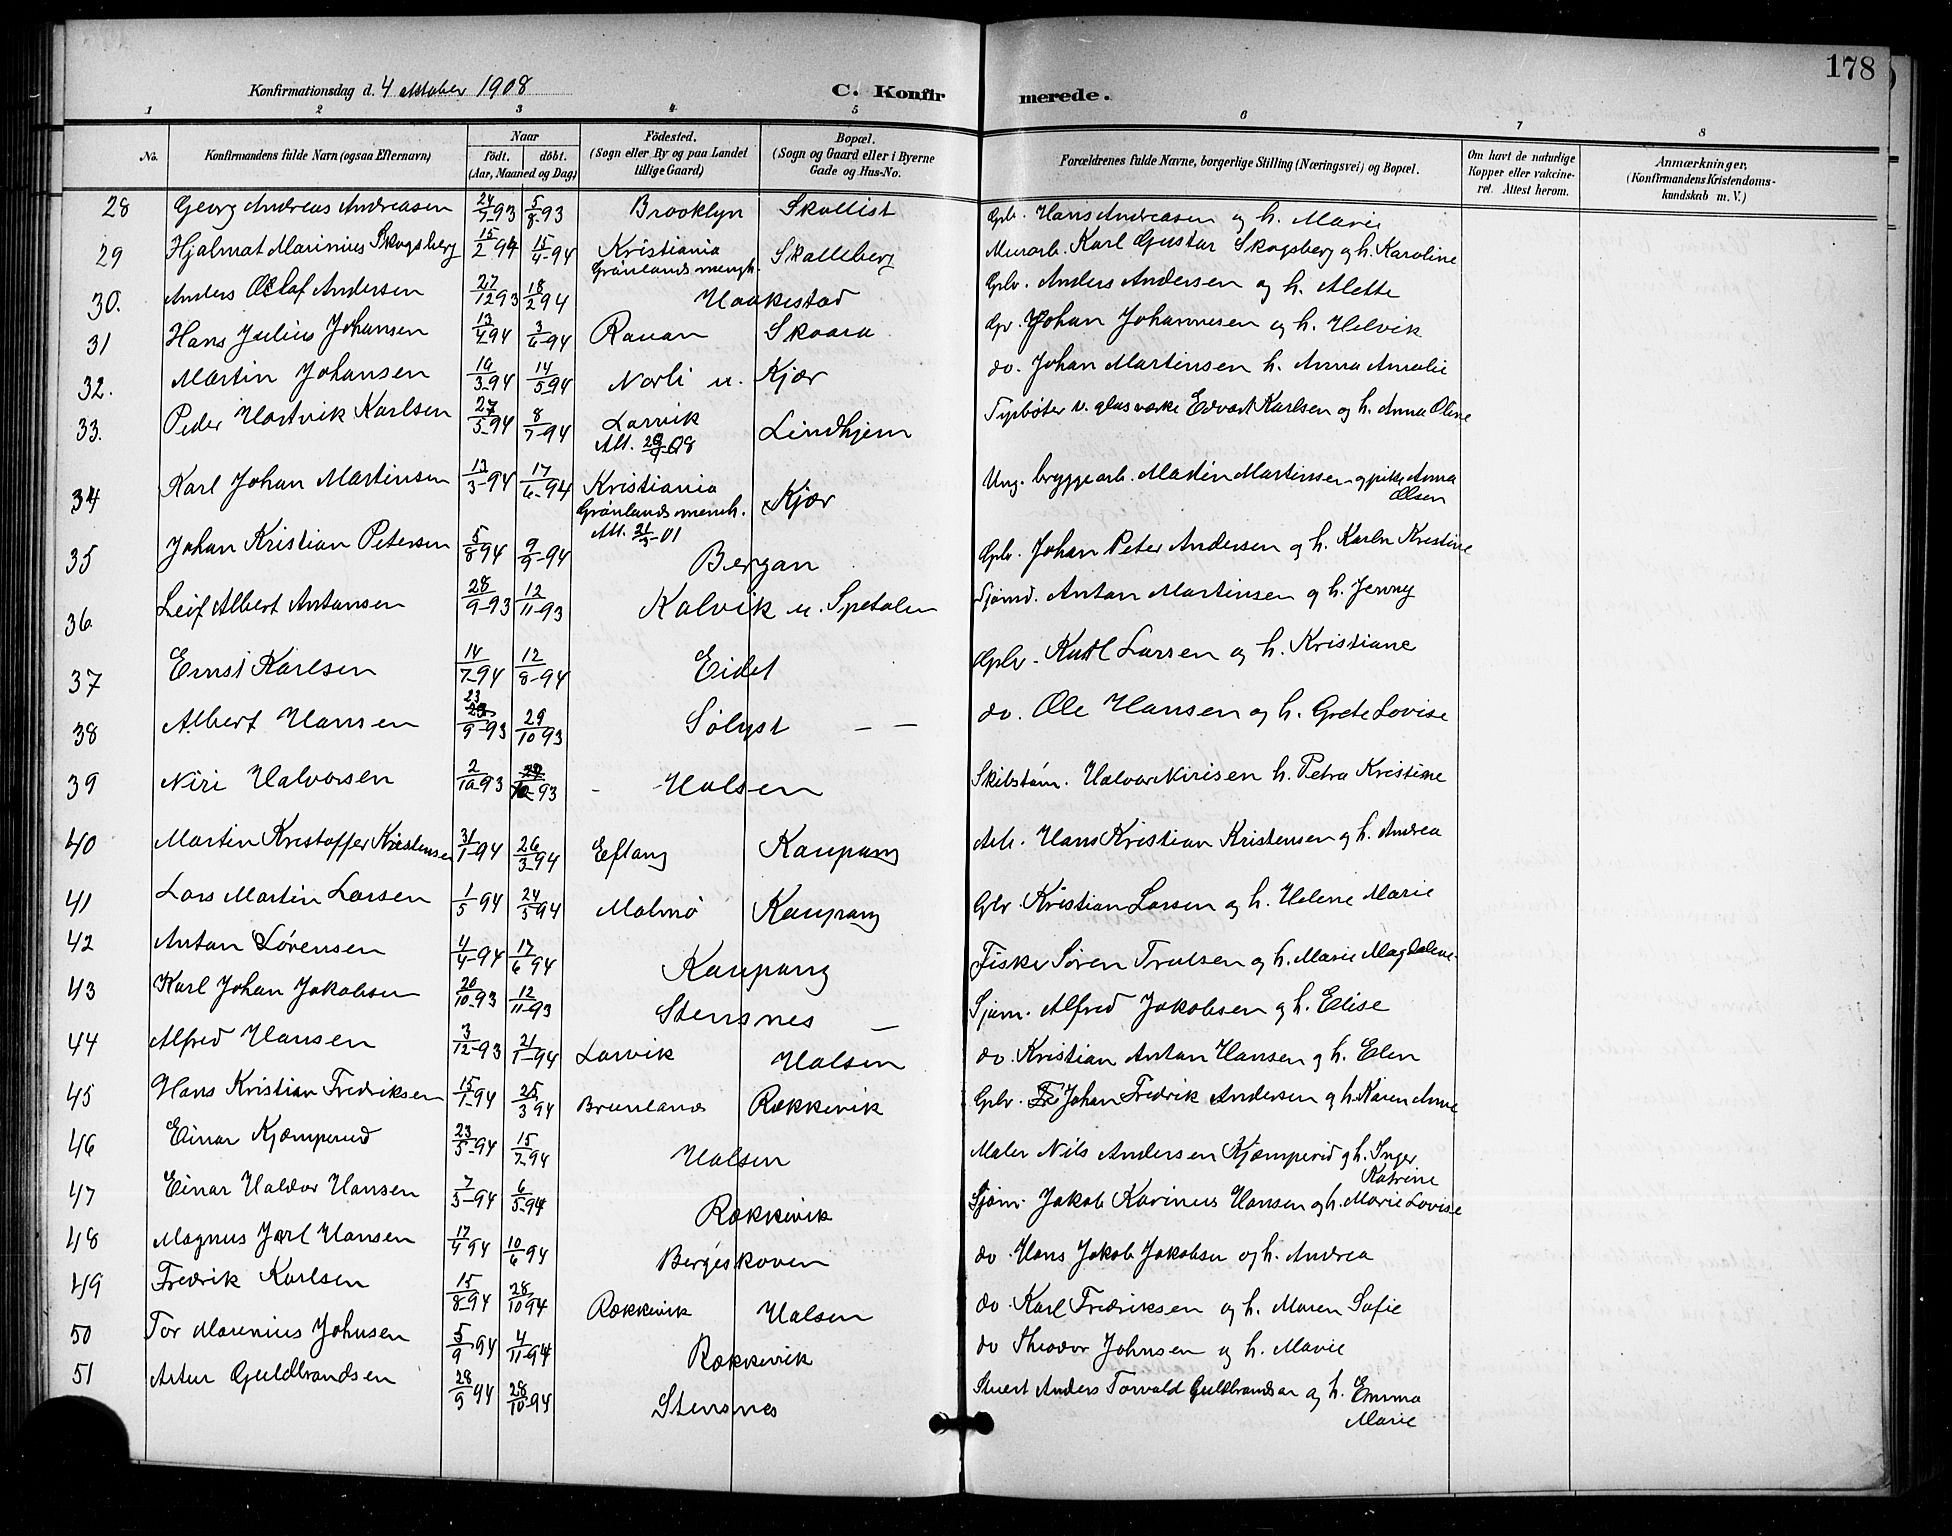 178
Konfirmationsdag d. 4 oktober 1908
C. Konfirmerede.
1 2 3 4 5 6 7 8
No. Konfirmandens fulde Navn (ogsaa Efternavn) Naar födt. döbt. (Aar, Maaned og Dag) Födested. (Sogn eller By og paa Landet tillige Gaard) Bopæl. (Sogn og Gaard eller i Byerne Gade og Hus-No. Forældrenes fulde Navne, borgerlige Stilling (Næringsvei) og Bopæl. Om havt de naturlige Kopper eller vakcineret. Attest herom. Anmærkninger, (Konfirmandens Kristendomskundskab m. V.)
28 Georg Andreas Andreasen 24/7-93 5/8-93 Brooklyn Skallist Gbr. Hans Andreasen og h. Marie
29 Hjalmar Marinius Skogsberg 15/2 94 15/4-94 Kristiania Skalleberg Murarb. Karl Gustav Skogsberg og h. Karoline
Grønlands mengh.
30. Anders Olaf Andersen 27/12 93 18/2 94 Haakestad Gbr. Anders Andersen og h. Alette
31 Hans Julius Johansen 13/4 94 3/6-94 Rauan Skaara Gbr. Johan Johannesen og h. Helvik
32. Martin Johansen 19/3-94 14/5 94 Norli u. Kjær do. Johan Martinsen h. Anna Amalie
33. Peder Hartvik Karlsen 27/5-94 8/7-94 Larvik Lindhjem v. glasværke Edvart Karlsen og h. Anna Oline
Att. 29/9-08
34 Karl Johan Martinsen 13/3-94 17/6-94 Kristiania Kjær Ung. bryggearb. Martin Martinsen og pike Anna Olsen
Grønlands mengh.
Att. 21/5-01
35 Johan Kristian Petersen 5/8 94 9/9-94 Bergan Gbr. Johan Peter Andersen og h. Karen Kristine
36. Leif Albert Antonsen 28/9-93 12/11-93 Kalvik u. Spetalen Sjømd. Anton Martinsen og h. Jenny
37 Ernst Karlsen 14/7-94 12/8-94 Eidet Gbr. Karl Larsen og h. Kristiane
38 Albert Hansen 23/9-93 29/10 93 Sølyst — — do. Ole Hansen og h. Grete Lovise
39 Niri Halvorsen 2/10-93 -93 - Halsen Skibstøm. Halvor Nirisen h. Petra Kristine
40 Martin Kristoffer Kristensen 31/1-94 26/3-94 Eftang Kaupang Arb. Hans Kristian Kristensen og h. Andrea
41 Lars Martin Larsen 1/5 94 24/5 94 Malmø Kaupang Gbr. Kristian Larsen og h. Helene Marie
42 Anton Sørensen 4/4-94 17/6 94 Kaupang Fisker Søren Trulsen og h. Marie Magdalene
43 Karl Johan Jakobsen 20/10-93 12/11-93 Stensnes — Sjøm. Alfred Jakobsen og h. Elise
44 Alfred Hansen 3/12-93 21/1-94 Larvik Halsen do. Kristian Anton Hansen og h. Elen
45 Hans Kristian Fredriksen 15/1-94 25/3 94 Brunlanes Rækkevik Gbr. Johan Fredrik Andersen og h. Karen Anne
46 Einar Kjæmperud 23/5-94 15/7-94 Halsen Maler Nils Andersen Kjæmperud og h. Inger Katrine
47 Einar Haldor Hansen 7/3-94 6/5-94 Rækkevik Sjøm. Jakob Karinius Hansen og h. Marie Lovise
48 Magnus Jarl Hansen 17/4 94 10/6 94 Bergeskoven do. Hans Jakob Jakobsen og h. Andrea
49 Fredrik Karlsen 15/8-94 28/10 94 Rækkevik Halsen do. Karl Fredriksen og h. Maren Sofie
50 Tor Marenius Johnsen 5/9 94 4/11-94 Rækkevik do Theodor Johnsen og h. Marie
51 Artur Guldbrandsen 28/9 94 28/10-94 Stensnes Stuert Anders Torvald Guldbrandsen og h. Emma Marie